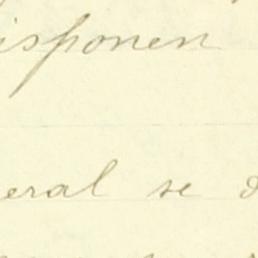 isponen
eral se